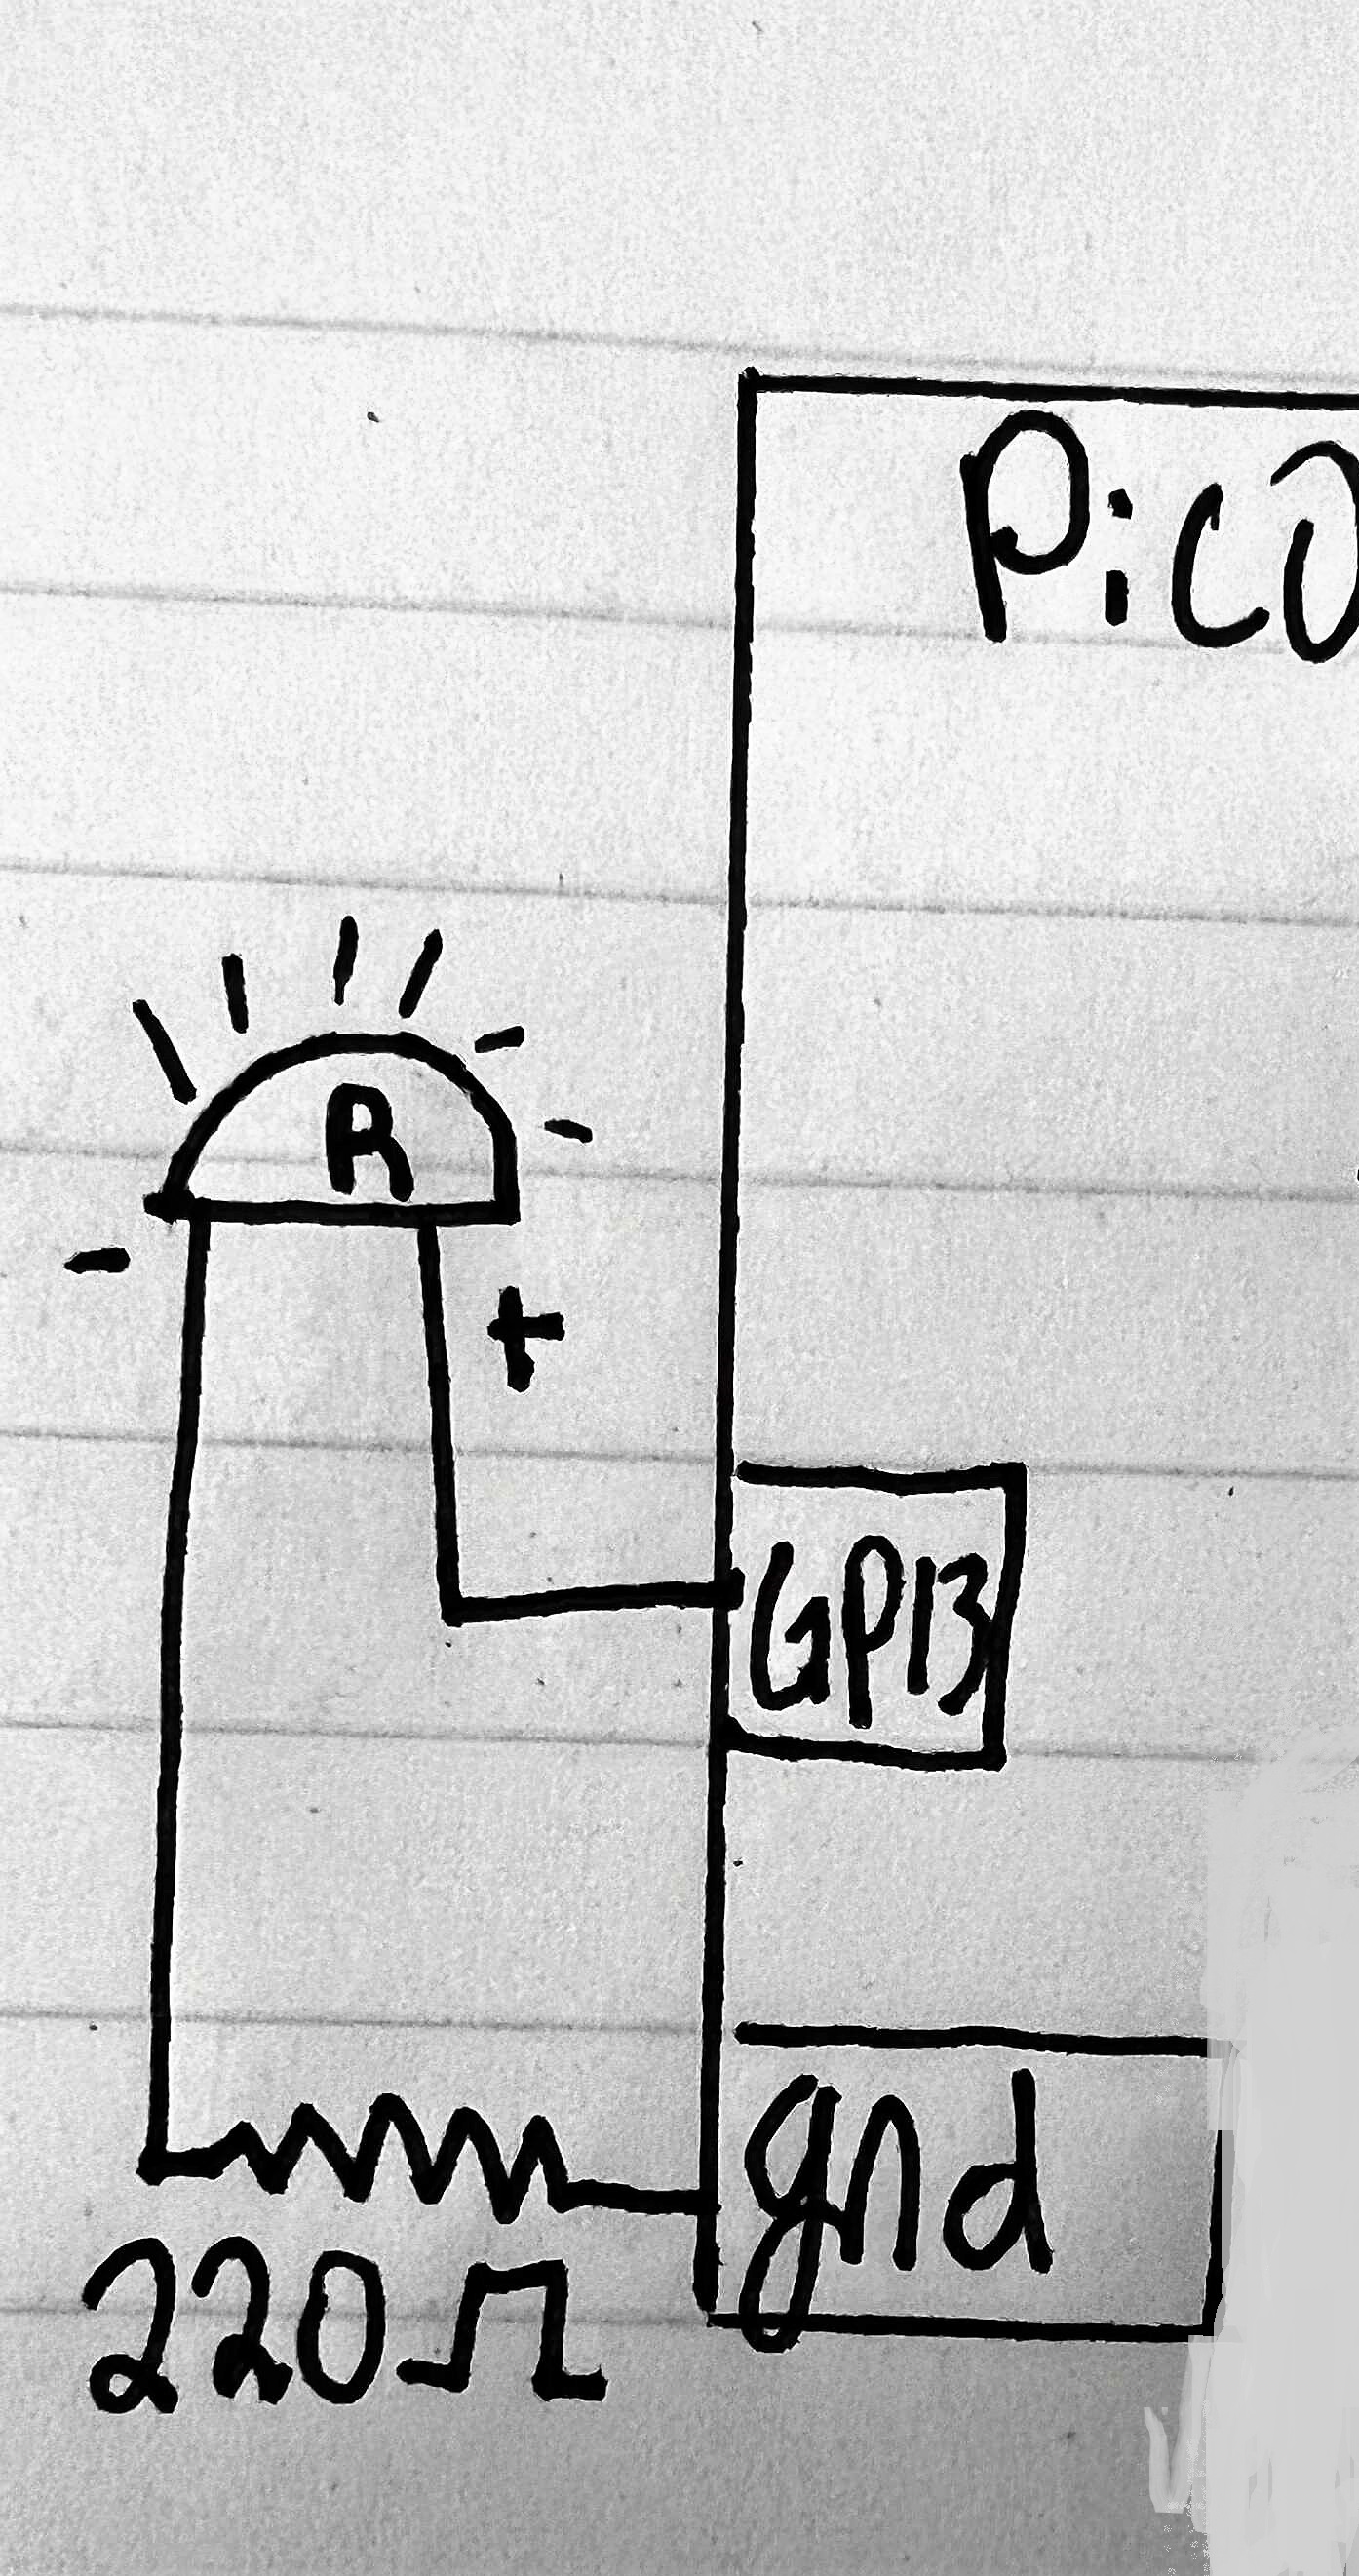 Pico
R
- +
GP13
gnd
220Ω